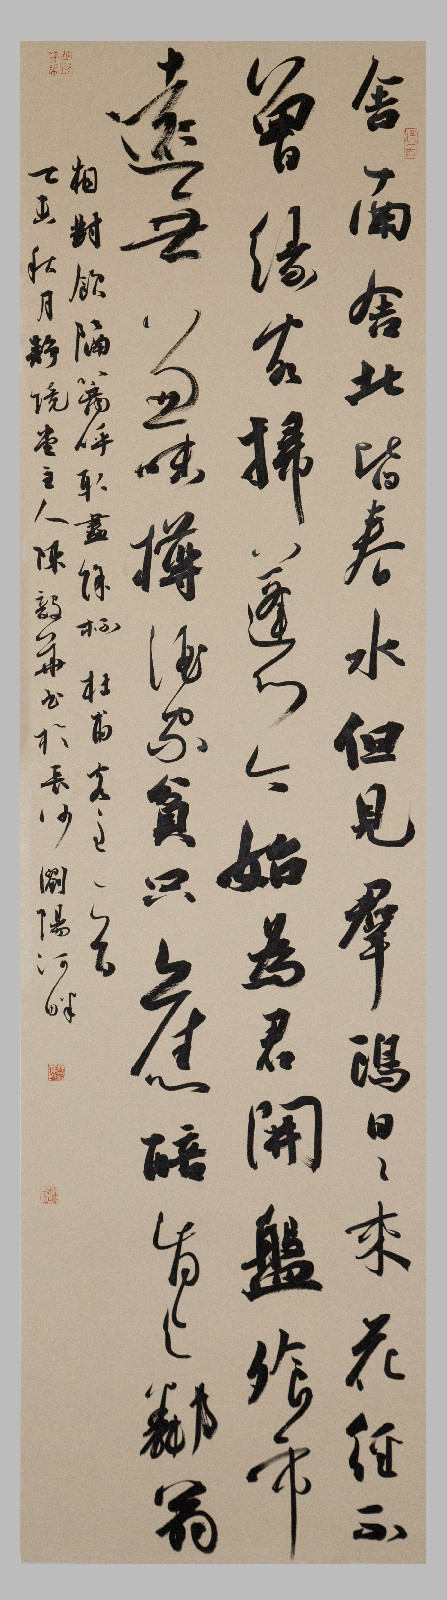 舍南舍北皆春水但見羣鷗日〻來花徑不
曾緣客掃蓬門今始為君開盤飧市
遠無兼味樽酒家貧只舊醅肯與鄰翁
相對飲隔籬呼取盡餘杯 杜甫客至一首
亥秋月 境堂主人陳 華書於長沙瀏陽河畔